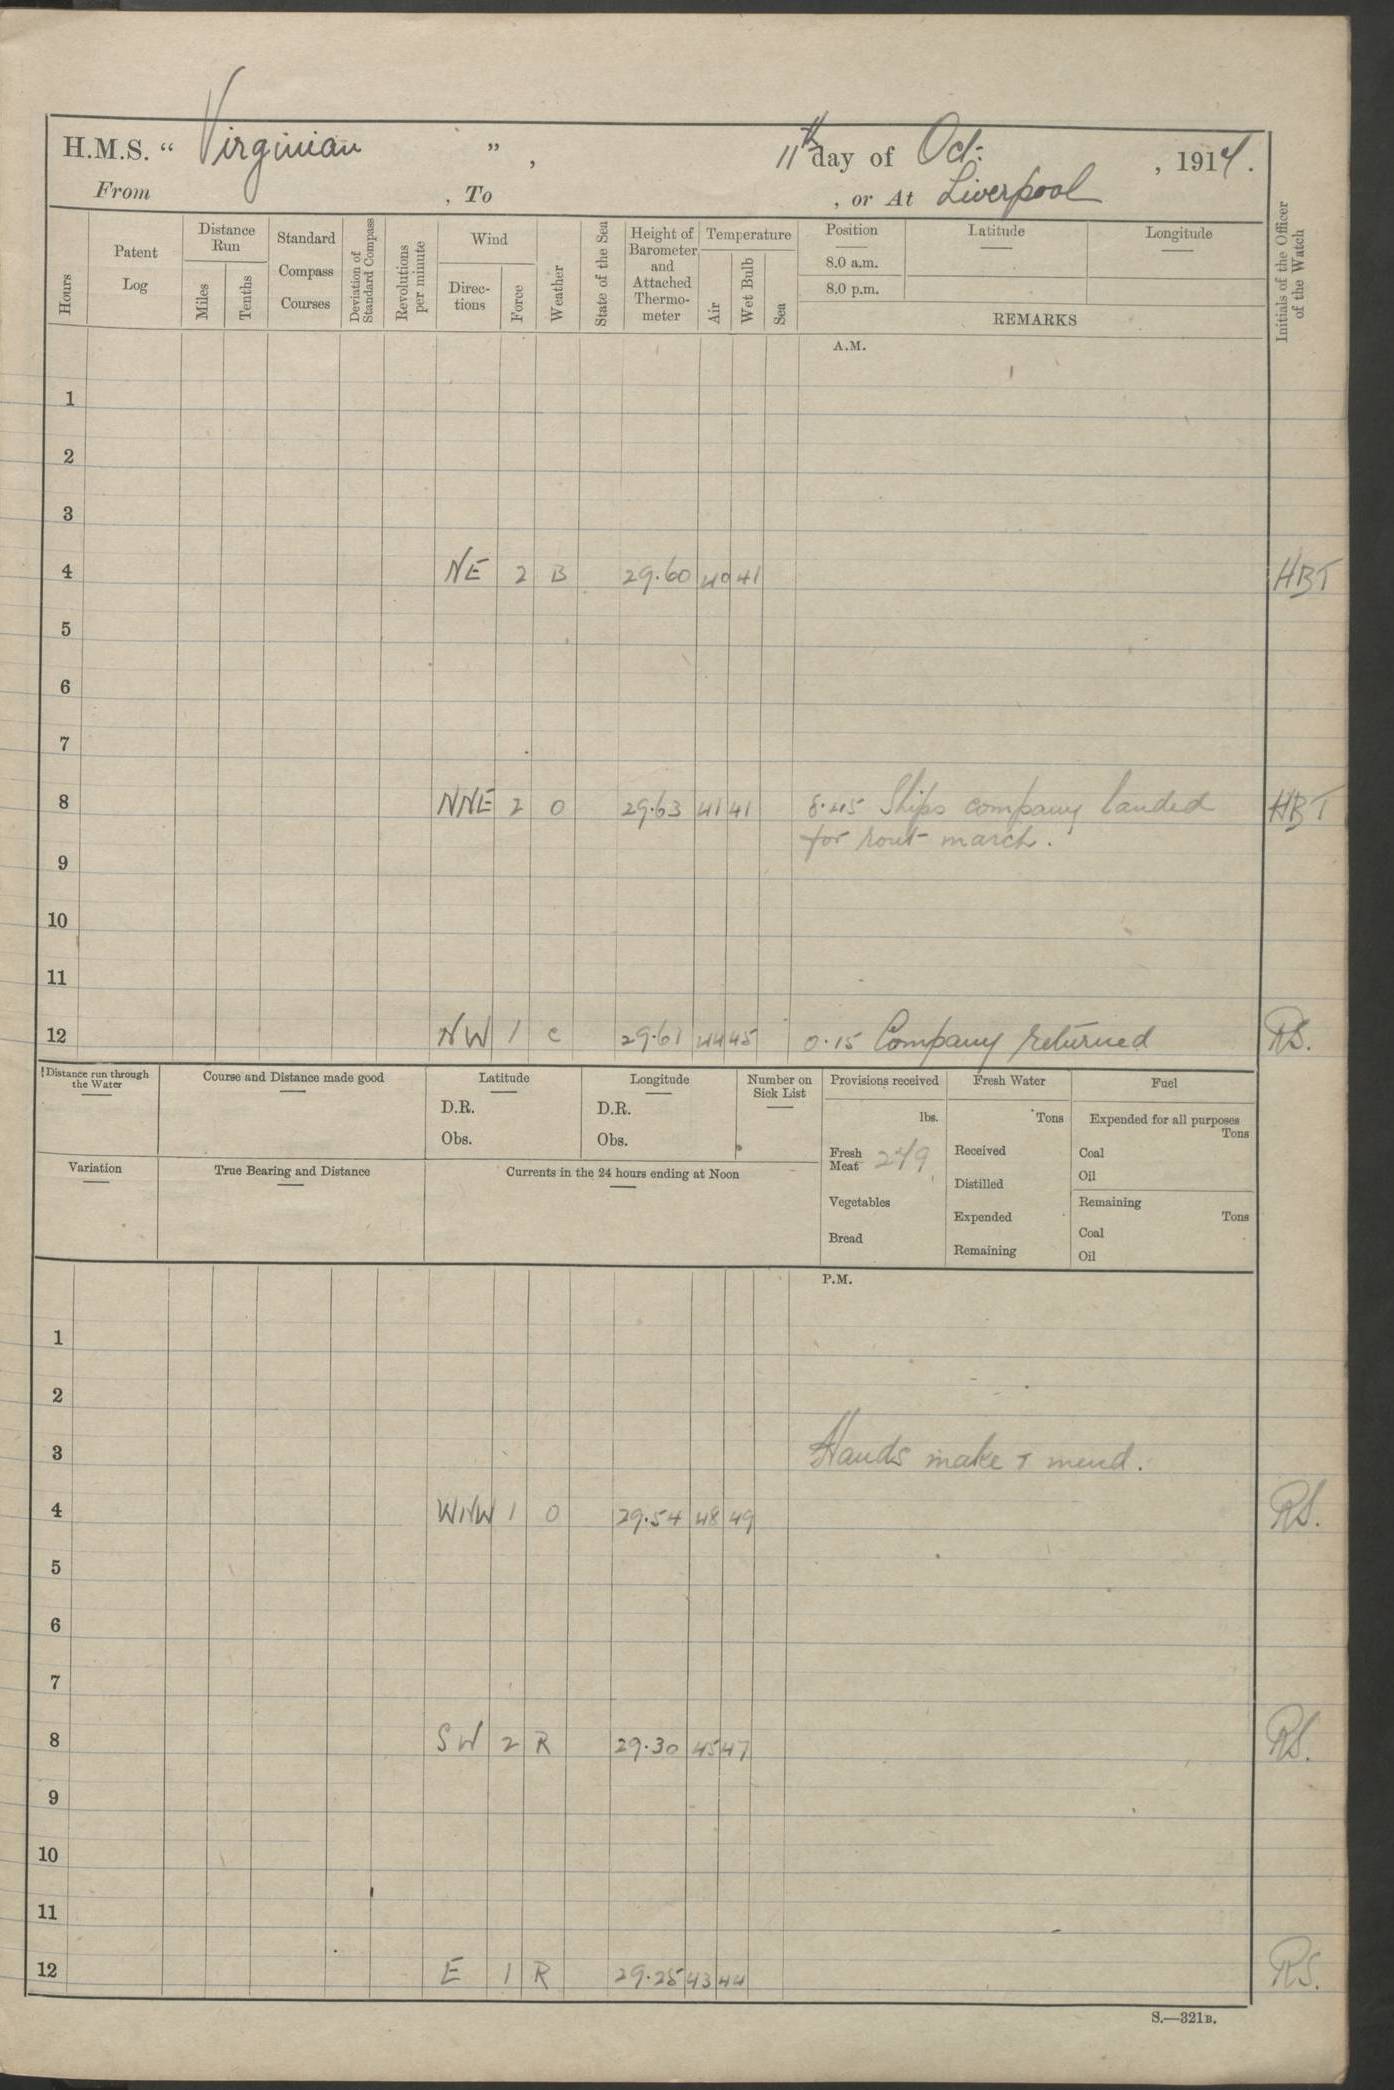 H.M.S. “ Virginian ” , 11th day of Oct: , 1914.
From , To , or At Liverpool
Hours
Patent Log
Distance Run
Miles
Tenths
Standard Compass Courses
Deviation of Standard Compass
Revolutions per minute
Wind
Direc-tions
Force
Weather
State of the Sea
Height of Barometer and Attached Thermo-meter
Temperature
Air
Wet Bulb
Sea
Position Latitude Longitude
8.0 a.m.
8.0 p.m.
REMARKS
Initials of the Officer of the Watch
A.M.
1
2
3
4 NE 2 B 29.60 40 41 HBT
5
6
7
8 NNE 2 O 29.63 41 41 8.45 Ships company landed HBT
for rout march.
9
10
11
12 NW 1 C 29.61 44 45 0.15 Company returned RS.
Distance run through the Water
Course and Distance made good
Latitude
D.R.
Obs.
Longitude
D.R.
Obs.
Number on Sick List
Provisions received
lbs.
Fresh Meat 249
Vegetables
Bread
Fresh Water
Tons
Received
Distilled
Expended
Remaining
Fuel
Expended for all purposes
Tons
Coal
Oil
Remaining
Tons
Coal
Oil
Variation
True Bearing and Distance
Currents in the 24 hours ending at Noon
P.M.
1
2
3 Hands make & mend.
4 WNW 1 O 29.54 48 49 RS.
5
6
7
8 SW 2 R 29.30 45 47 RS.
9
10
11
12 E 1 R 29.25 43 44 RS.
S.—321B.